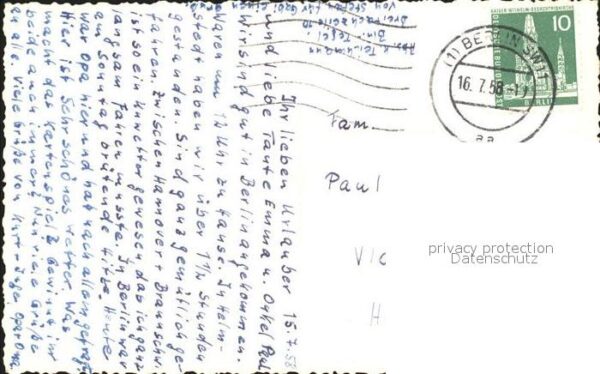 Ihr lieben Urlauber 15.7.58
und liebe Tante Emma u. Onkel Paul
Wir sind gut in Berlin angekommen.
Waren um 12 Uhr zu Hause. In Helm-
stedt haben wir über 1½ Stunden
gestanden. Sind ganz gemütlich ge-
fahren. Zwischen Hannover + Braunschw.
ist so ein Unwetter gewesen das ich ganz
langsam fahren musste. In Berlin war
am Sonntag brütende Hitze. Heute
war Opa hier und hat nach allem gefragt.
Hier ist sehr schönes Wetter. Was
macht das Kartenspiel? Gewinnt ihr
beide auch immer? Nun viele Grüße
an alle. Viele Grüße von Kurt - Inge Opa Oma
Abs. K.
Bln. Tegel
10
(1) BERLIN SW 11
16.7.58
aa
BERLIN
Fam.
Paul
Vic
H
privacy protection
Datenschutz